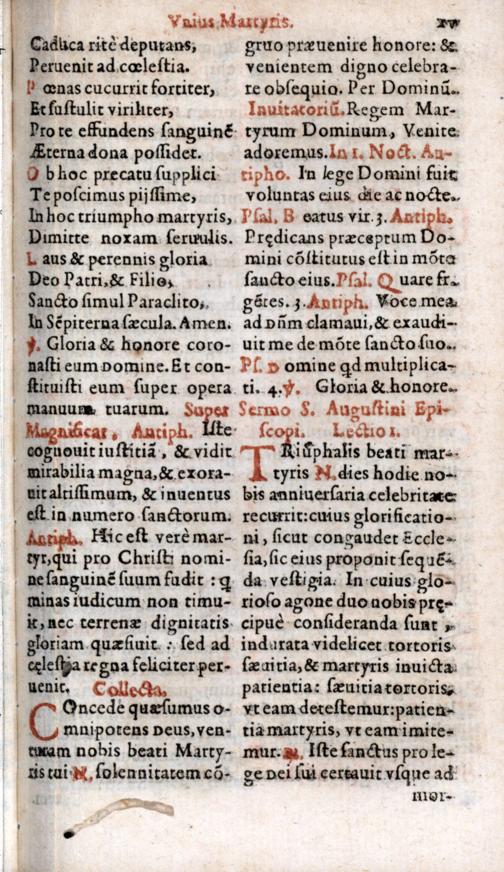 Vnius Martyris. xv
Caduca ritè deputans,
Peruenit ad cœlestia.
Pœnas cucurrit fortiter,
Et sustulit viriliter,
Pro te effundens sanguinē
Æterna dona possidet.
Ob hoc precatu supplici
Te poscimus pijssime,
In hoc triumpho martyris,
Dimitte noxam seruulis.
Laus & perennis gloria
Deo Patri, & Filio,
Sancto simul Paraclito,
In Sēpiterna sæcula. Amen.
℣. Gloria & honore coro-
nasti eum Domine. Et con-
stituisti eum super opera
manuum tuarum. Super
Magnificat, Antiph. Iste
cognouit iustitiā, & vidit
mirabilia magna, & exora-
uit altissimum, & inuentus
est in numero sanctorum.
Antiph. Hic est verè mar-
tyr, qui pro Christi nomi-
ne sanguinē suum fudit : q
minas iudicum non timu-
it, nec terrenæ dignitatis
gloriam quæsiuit : sed ad
cęlestia regna feliciter per-
uenit. Collecta.
COncede quæsumus o-
mnipotens Deus, ven-
turam nobis beati Marty-
ris tui N. solennitatem cō-
gruo præuenire honore: &
venientem digno celebra-
re obsequio. Per Dominū.
Inuitatoriū. Regem Mar-
tyrum Dominum, Venite
adoremus. In 1. Noct. An-
tipho. In lege Domini fuit
voluntas eius die ac nocte.
Psal. Beatus vir. 3. Antiph.
Prędicans præceptum Do-
mini cōstitutus est in mōte
sancto eius. Psal. Quare fr.
gētes. 3. Antiph. Voce mea
ad Dñm clamaui, & exaudi-
uit me de mōte sancto suo.
Ps. Domine qd multiplica-
ti. 4. ℣. Gloria & honore.
Sermo S. Augustini Epi-
scopi. Lectio 1.
TRiūphalis beati mar-
tyris N. dies hodie no-
bis anniuersaria celebritate
recurrit: cuius glorificatio-
ni, sicut congaudet Eccle-
sia, sic eius proponit sequē-
da vestigia. In cuius glo-
rioso agone duo nobis prę-
cipuè consideranda sunt,
indurata videlicet tortoris
sæuitia, & martyris inuicta
patientia: sæuitia tortoris,
vt eam detestemur: patien-
tia martyris, vt eam imite-
mur. ℟. Iste sanctus pro le-
ge Dei sui certauit vsque ad
mor-